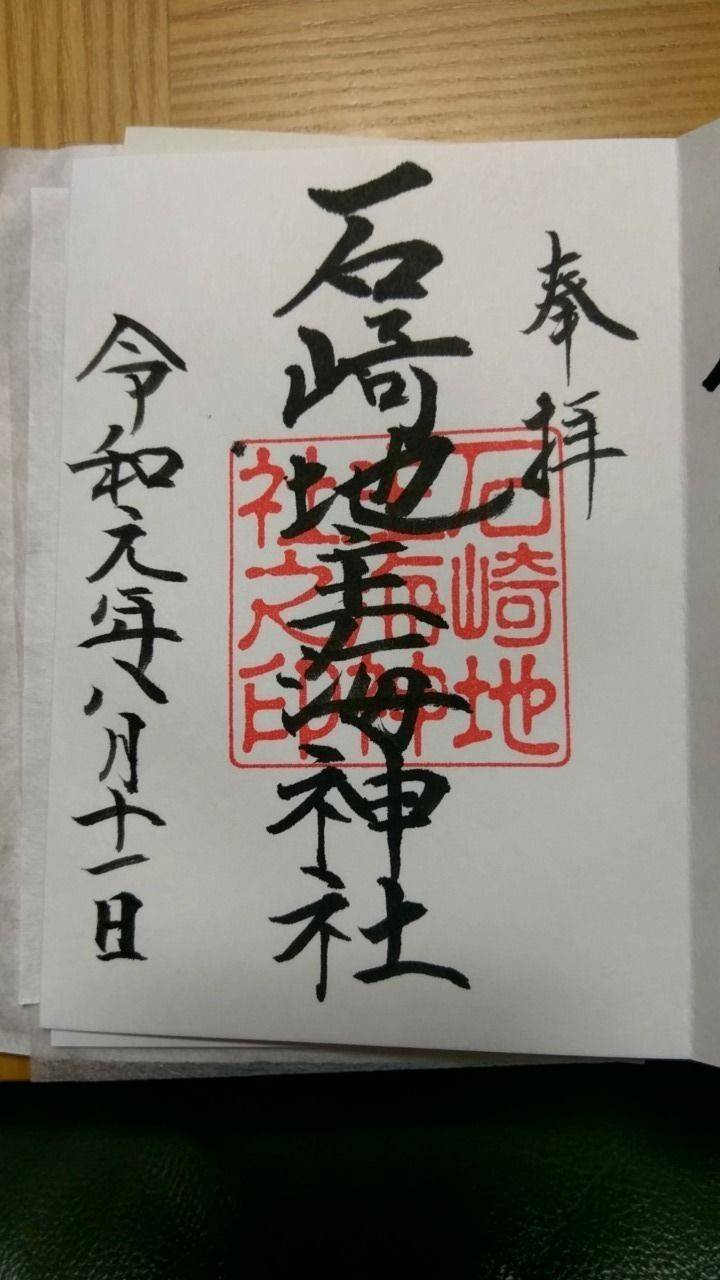 奉拝
石崎地主海神社
石崎地
主海神
社之印
令和元年八月十一日